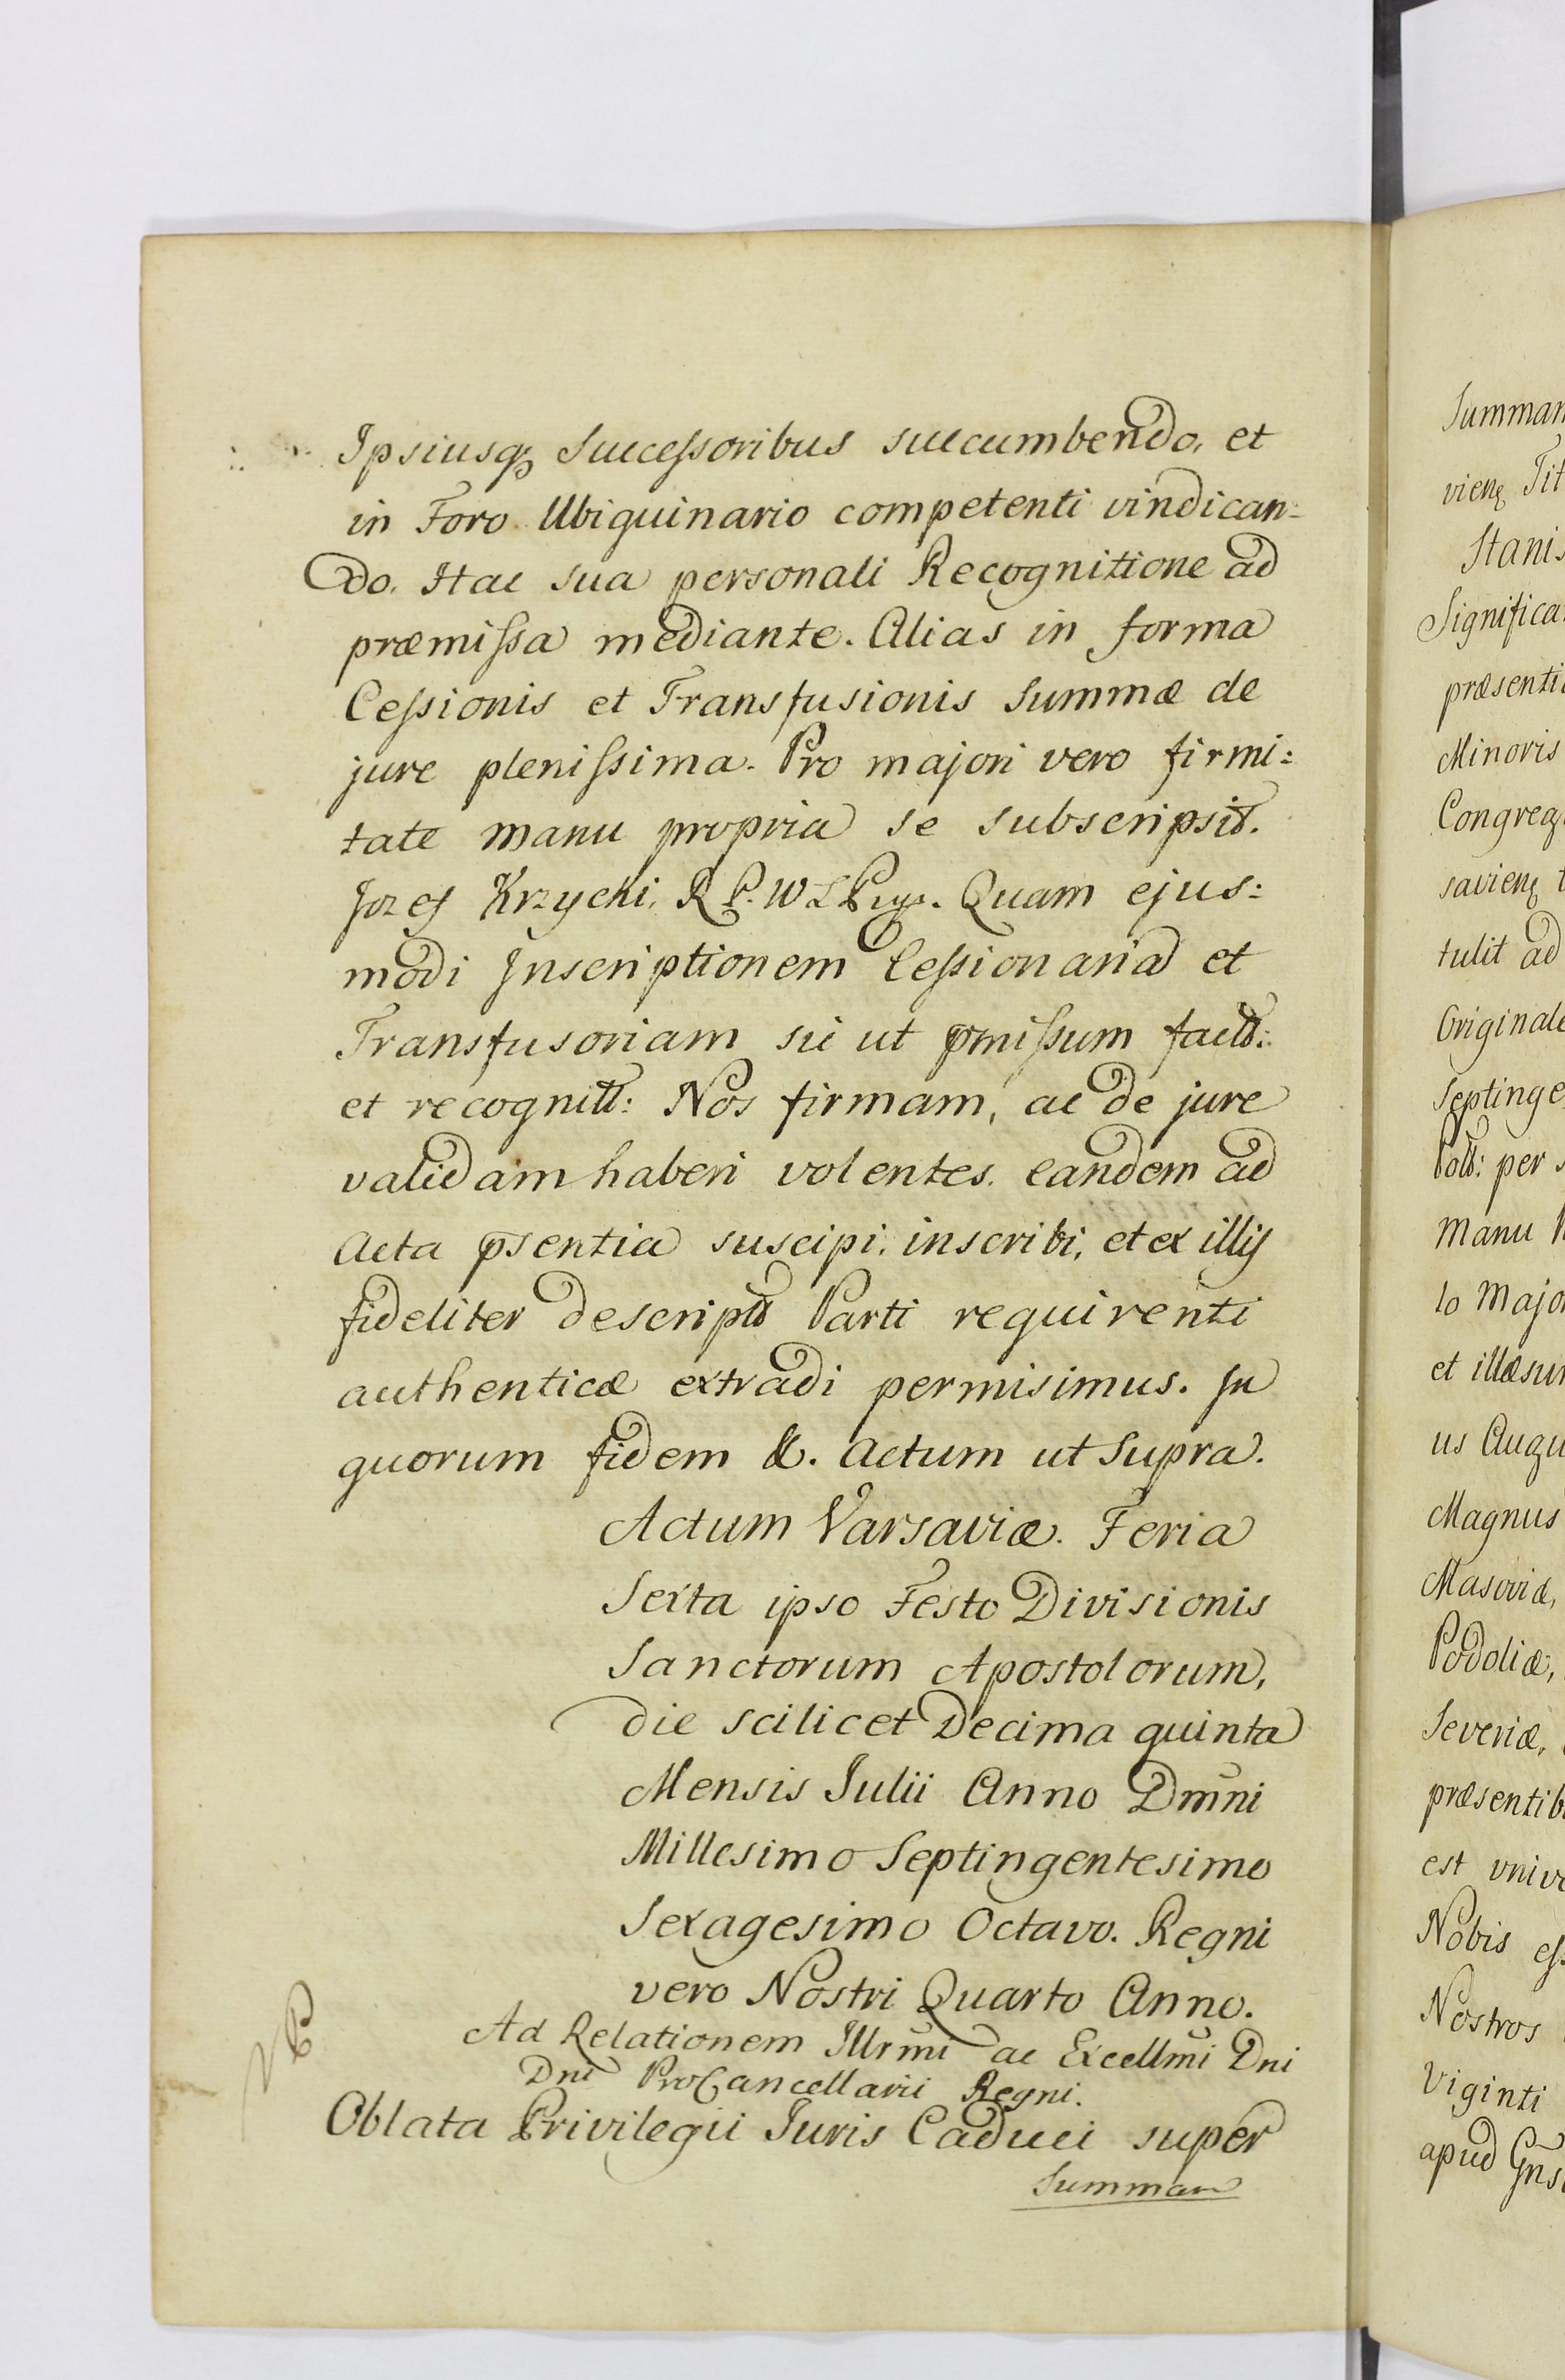 Ipsiusq Successoribus succumbendo, et
in Foro Ubiquinario competenti vindican=
do. Hac sua personali Recognitione ad
præmissa mediante. Alias in forma
Cessionis et Transfusionis Summæ de
jure plenissima. Pro majori vero firmi:
tate manu propria se subscripsit.
Jozef Krzycki, R P. W L Quam ejus:
modi Inscriptionem Cessionaria et
Transfusoriam sic ut pmissum factt:
et recognitt: Nos firmam, ac de jure
validam haberi volentes. eandem ad
Acta psentia suscipi, inscribi, et ex illis
fideliter descript Parti requirenti
authenticæ extradi permisimus. In
quorum fidem &. Actum ut Supra.
Actum Varsaviæ. Feria
Sexta ipso Festo Divisionis
Sanctorum Apostolorum,
die scilicet Decima quinta
Mensis Julii Anno Dmni
Millesimo Septingentesimo
Sexagesimo Octavo. Regni
vero Nostri Quarto Anno.
Ad Relationem Illrmi ac Excellmi Dni
Dni ProCancellarii Regni.
Oblata Privilegii Juris Caduci super
Summam
Summam
vien Tit
Stanis
Significa
præsenti
Minoris
Congreg
savien
tulit ad
Original
Septinge
per
Manu
lo Major
et illæsu
us Augu
Magnus
Masoviæ,
Podoliæ,
Severiæ,
præsentib
est univ
Nobis es
Nostros
Viginti
apud Gns